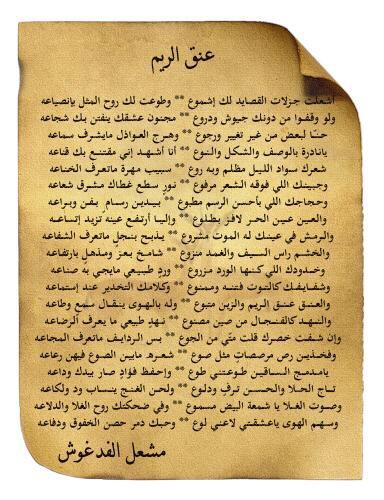 عنق الريم
أشعلت جزلات القصايد لك إشموع ** وطوعت لك روح المثل بإنصياعه
ولو وقفوا من دونك جيوش ودروع ** مجنون عشقك ينفتن بك شجاعه
حنا لبعض من غير تغيير ورجوع ** وهرج العواذل مايشرف سماعه
يانادرة بالوصف والشكل والنوع ** أنا أشهد إني مقتنع بك قناعه
شعرك سواد الليل مظلم وبه روع ** سبيب مهرة ماتعرف الخناعه
وجبينك اللي فوقه الشعر مرفوع ** نور سطع غطاك مشرق شعاعه
وحجاجك اللي بأحسن الرسم مطبوع ** بيدين رسام بفن وبراعه
والعين عين الحر لافز بطلوع ** وإليا أرتفع عينه تزيد إتساعه
والرمش في عينك له الموت مشروع ** يذبح بنجل ماتعرف الشفاعه
والخشم راس السيف والغمد منزوع ** شامخ بعز ومذهل بارتفاعه
وخدودك اللي كنها الورد مزروع ** ورد طبيعي مايجي به صناعه
وشفايفك كالتوت فتنه وممنوع ** وكلامك التخدير عند إستماعه
والعنق عنق الريم والزين متبوع ** وله بالهوى ينقال سمع وطاعه
والنهد كالفنجال من صين مصنوع ** نهد طبيعي ما يعرف الرضاعه
وإن شفت خصرك قلت متى من الجوع ** بس الردايف ماتعرف المجاعه
وفخذين رص مرصصات مثل صوع ** شعره مابين الصوع فيهن رعاعه
يامدمج الساقين طوعتني طوع ** وإحفظ فؤاد صار بيدك وداعه
تاج الحلا والحسن ترف ودلوع ** ولحن الغنج ينساب ود ولكاعه
وصوت الغلا يا شمعة البيض مسموع ** وفي ضحكتك روح الغلا والدلاعه
وسهم الهوى ياعشقتي لاعني لوع ** وحبك دمر حصن الخفوق ودفاعه
مشعل الفدغوش